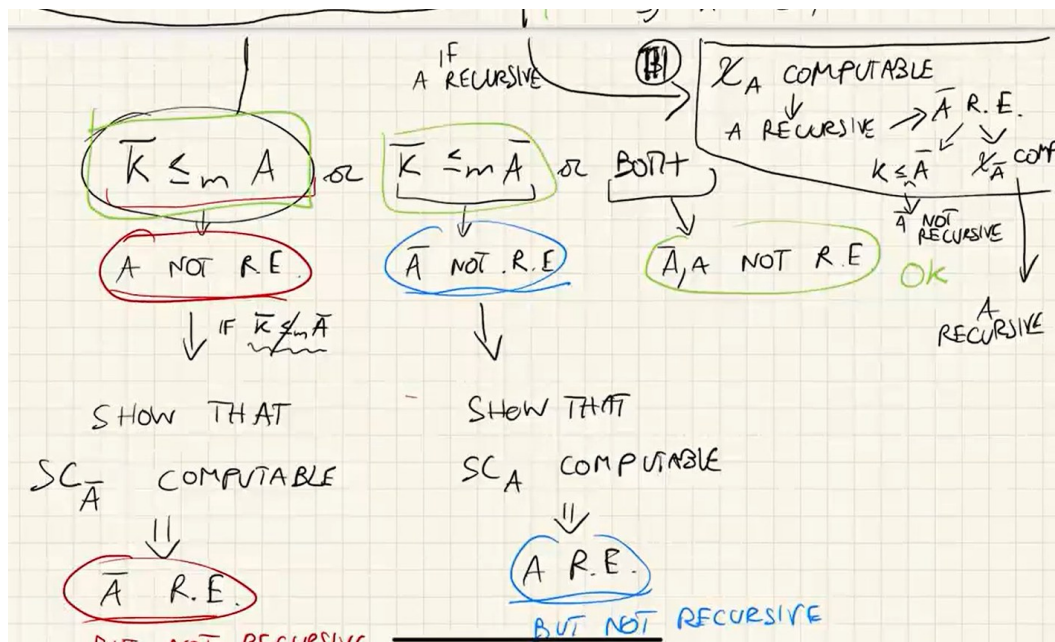 IF
A RECURSIVE
III
χ_A COMPUTABLE
A RECURSIVE → A̅ R.E.
K ≤ A̅ χ_A̅ COMP
A̅ NOT
RECURSIVE
OK
A
RECURSIVE
K̅ ≤m A or K̅ ≤m A̅ or BOTH
A NOT R.E.
A̅ NOT R.E
A̅, A NOT R.E
IF K̅ ≰m A̅
SHOW THAT
SC_A̅ COMPUTABLE
⇓
A̅ R.E.
BUT NOT RECURSIVE
SHOW THAT
SC_A COMPUTABLE
⇓
A R.E.
BUT NOT RECURSIVE